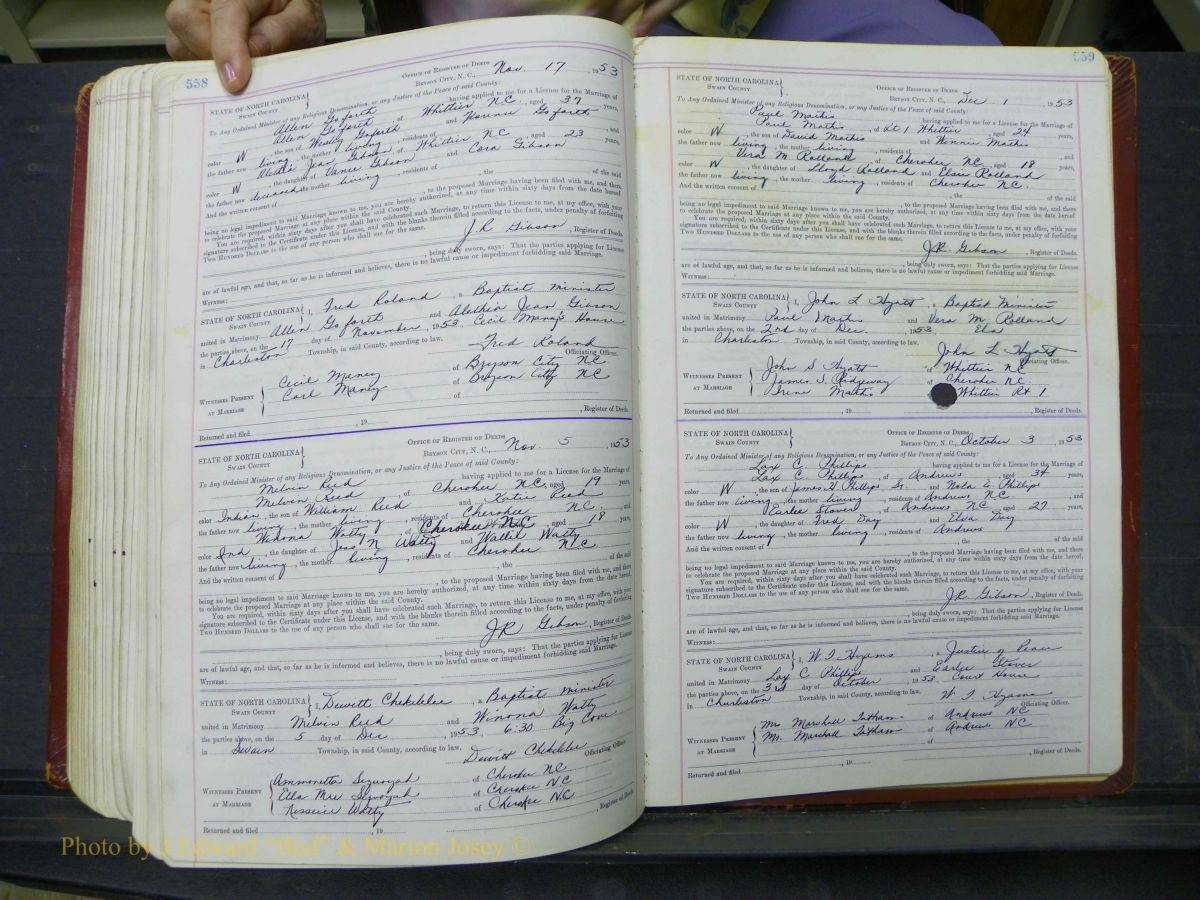 558
OFFICE OF REGISTER OF DEEDS
STATE OF NORTH CAROLINA
SWAIN COUNTY
BRYSON CITY, N. C., Nov. 17 1953
To Any Ordained Minister of any Religious Denomination, or any Justice of the Peace of said County:
Allen Goforth having applied to me for a License for the Marriage of
Allen Goforth of Whittier N.C. aged 37 years,
color W the son of Westly Goforth and Goforth
the father now living, the mother living, residents of
Jean Gibson of Whittier NC, aged 23 years,
color W, the daughter of Vance Gibson and Cora Gibson
the father now, the mother living, residents of
And the written consent of , the of the said
, to the proposed Marriage having been filed with me, and there
being no legal impediment to said Marriage known to me, you are hereby authorized, at any time within sixty days from the date hereof
to celebrate the proposed Marriage at any place within the said County.
You are required, within sixty days after you shall have celebrated such Marriage, to return this License to me, at my office, with your
signature subscribed to the Certificate under this License, and with the blanks therein filled according to the facts, under penalty of forfeiting
TWO HUNDRED DOLLARS to the use of any person who shall sue for the same.
J.R. Gibson, Register of Deeds.
, being duly sworn, says: That the parties applying for License
are of lawful age, and that, so far as he is informed and believes, there is no lawful cause or impediment forbidding said Marriage.
WITNESS:
STATE OF NORTH CAROLINA
SWAIN COUNTY
I, Fred Roland, a Baptist Minister
united in Matrimony Allen Goforth and Jean Gibson
the parties above, on the 17 day of November, 1953, Cecil Maney's House
in Charleston Township, in said County, according to law.
Fred Roland
Officiating Officer.
WITNESSES PRESENT AT MARRIAGE
Cecil Maney of Bryson City NC
Carl Maney of Bryson City NC
of
Returned and filed , 19 , Register of Deeds.
STATE OF NORTH CAROLINA
SWAIN COUNTY
OFFICE OF REGISTER OF DEEDS
BRYSON CITY, N. C., Nov. 5 1953
To Any Ordained Minister of any Religious Denomination, or any Justice of the Peace of said County:
Melvin Reed having applied to me for a License for the Marriage of
Melvin Reed, of Cherokee N.C. aged 19 years,
color Indian, the son of William Reed and Katie Reed
the father now living, the mother living, residents of Cherokee N.C., and
Winona Watty of Cherokee N.C. aged 18 years,
color Ind, the daughter of Jess N Watty and Watty
the father now living, the mother living, residents of Cherokee N.C.
And the written consent of , the of the said
, to the proposed Marriage having been filed with me, and there
being no legal impediment to said Marriage known to me, you are hereby authorized, at any time within sixty days from the date hereof
to celebrate the proposed Marriage at any place within the said County.
You are required, within sixty days after you shall have celebrated such Marriage, to return this License to me, at my office, with your
signature subscribed to the Certificate under this License, and with the blanks therein filled according to the facts, under penalty of forfeiting
TWO HUNDRED DOLLARS to the use of any person who shall sue for the same.
J R Gibson, Register of Deeds.
, being duly sworn, says: That the parties applying for License
are of lawful age, and that, so far as he is informed and believes, there is no lawful cause or impediment forbidding said Marriage.
WITNESS:
STATE OF NORTH CAROLINA
SWAIN COUNTY
I, Dewitt Chekelelee, a Baptist Minister
united in Matrimony Melvin Reed and Winona Watty
the parties above, on the 5 day of Dec, 1953, 6:30 Big Cove
in Swain Township, in said County, according to law.
Dewitt Chekelelee
Officiating Officer.
WITNESSES PRESENT AT MARRIAGE
Ammonetta Sequoyah of Cherokee NC
Ella Mre Sequoyah of Cherokee N.C
Watty of Cherokee N.C.
Returned and filed , 19 , Register of Deeds.
559
STATE OF NORTH CAROLINA
SWAIN COUNTY
OFFICE OF REGISTER OF DEEDS
BRYSON CITY, N. C., Dec. 1 1953
To Any Ordained Minister of any Religious Denomination, or any Justice of the Peace of said County:
Paul Mathis having applied to me for a License for the Marriage of
Paul Mathis, of Rt 1 Whittier, aged 24 years,
color W, the son of David Mathis and Winnie Mathis
the father now living, the mother living, residents of , and
Vera M Rolland of Cherokee NC, aged 18 years,
color W, the daughter of Lloyd Rolland and Elsie Rolland
the father now living, the mother living, residents of Cherokee N.C.
And the written consent of , the of the said
, to the proposed Marriage having been filed with me, and there
being no legal impediment to said Marriage known to me, you are hereby authorized, at any time within sixty days from the date hereof
to celebrate the proposed Marriage at any place within the said County.
You are required, within sixty days after you shall have celebrated such Marriage, to return this License to me, at my office, with your
signature subscribed to the Certificate under this License, and with the blanks therein filled according to the facts, under penalty of forfeiting
TWO HUNDRED DOLLARS to the use of any person who shall sue for the same.
J.R. Gibson, Register of Deeds.
, being duly sworn, says: That the parties applying for License
are of lawful age, and that, so far as he is informed and believes, there is no lawful cause or impediment forbidding said Marriage.
WITNESS:
STATE OF NORTH CAROLINA
SWAIN COUNTY
I, John L Hyatt, a Baptist Minister
united in Matrimony Paul Mathis and Vera M. Rolland
the parties above, on the 2nd day of Dec. 1953, Ela
in Charleston Township, in said County, according to law.
John L Hyatt
Officiating Officer.
WITNESSES PRESENT AT MARRIAGE
John S Hyatt of Whittier NC
James S. Ridgeway of Cherokee N.C
Irene Mathis Whittier Rt 1
Returned and filed , 19 , Register of Deeds.
STATE OF NORTH CAROLINA
SWAIN COUNTY
OFFICE OF REGISTER OF DEEDS
BRYSON CITY, N. C., October 3, 1953
To Any Ordained Minister of any Religious Denomination, or any Justice of the Peace of said County:
Lax C Phillips having applied to me for a License for the Marriage of
Lax C. Phillips of Andrews aged 34 years,
color W, the son of James H Phillips Sr. and Nola E Phillips
the father now living, the mother living, residents of Andrews N.C., and
Earlee Stover of Andrews N.C aged 27 years,
color W, the daughter of Fred Day and Elva Day
the father now living, the mother living, residents of Andrews
And the written consent of , the of the said
, to the proposed Marriage having been filed with me, and there
being no legal impediment to said Marriage known to me, you are hereby authorized, at any time within sixty days from the date hereof
to celebrate the proposed Marriage at any place within the said County.
You are required, within sixty days after you shall have celebrated such Marriage, to return this License to me, at my office, with your
signature subscribed to the Certificate under this License, and with the blanks therein filled according to the facts, under penalty of forfeiting
TWO HUNDRED DOLLARS to the use of any person who shall sue for the same.
J.R. Gibson, Register of Deeds.
, being duly sworn, says: That the parties applying for License
are of lawful age, and that, so far as he is informed and believes, there is no lawful cause or impediment forbidding said Marriage.
WITNESS:
STATE OF NORTH CAROLINA
SWAIN COUNTY
I, W T Hyams, a Justice of Peace
united in Matrimony Lax C Phillips and Earlee Stover
the parties above, on the 3rd day of October, 1953, Court House
in Charleston Township, in said County, according to law.
W. T. Hyams
Officiating Officer.
WITNESSES PRESENT AT MARRIAGE
Mr. Marshall Tatham of Andrews NC
Ms. Marshall Tatham of Andrews N.C
of
Returned and filed , 19 , Register of Deeds.
Photo by J Edward "Bud" & Marion Josey ©